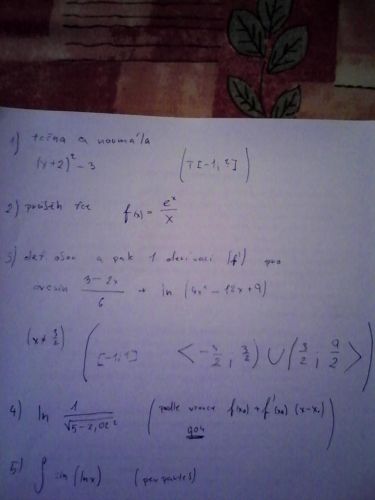 1) tečna a normála
(x+2)² - 3 (T[-1, ?])
2) průběh fce f(x) = e^x / x
3) def. obor a pak 1 derivaci (f') pro
arcsin (3-2x)/6 + ln (4x² - 12x + 9)
(x ≠ 3/2) ([-1;1] <-3/2, 3/2) ∪ (3/2, 9/2>)
4) ln 1/√(5-2,02²) (podle vzorce f(x₀) + f'(x₀) (x-x₀)
904
5) ∫ sin (ln x) (per partes)